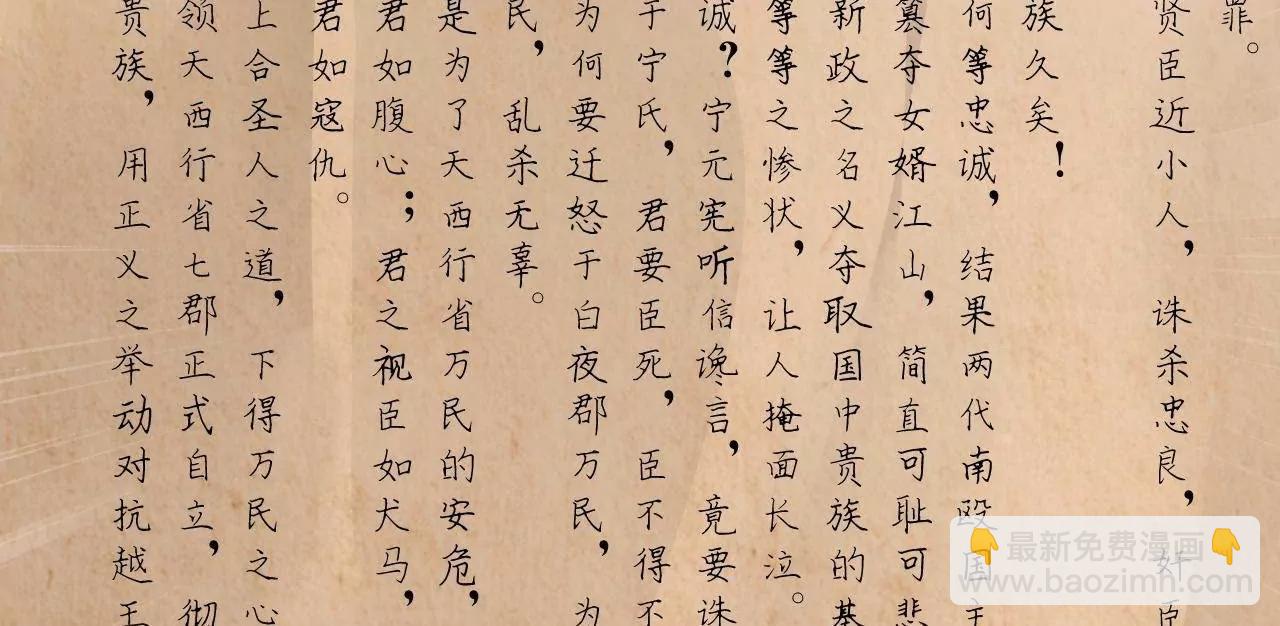 罪。
贤臣近小人，诛杀忠良，奸臣
族久矣！
何等忠诚，结果两代南殴国主
篡夺女婿江山，简直可耻可悲
新政之名义夺取国中贵族的基
等等之惨状，让人掩面长泣。
诚？宁元宪听信谗言，竟要诛
于宁氏，君要臣死，臣不得不
为何要迁怒于白夜郡万民，为
民，乱杀无辜。
是为了天西行省万民的安危，
君如腹心；君之视臣如犬马，
君如寇仇。
上合圣人之道，下得万民之心
领天西行省七郡正式自立，彻
贵族，用正义之举动对抗越王
最新免费漫画
www.baozimh.com